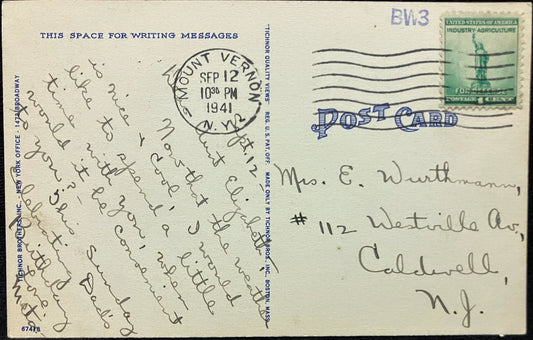 THIS SPACE FOR WRITING MESSAGES
BW3
MOUNT VERNON
SEP 12
10 30 PM
1941
N.Y.
UNITED STATES OF AMERICA
INDUSTRY-AGRICULTURE
FOR DEFENSE
POSTAGE 1 CENTS
POST CARD
Sept. 12-
Aunt Elizabeth:
Now that the weather
is nice & cool, I would
like to spend a little
time with you, when
would it be convenient
to you? This Sunday
celebrating Dad's
birthday
Love,
Mrs. E. Wurthmann,
# 112 Westville Av.,
Caldwell,
N.J.
TICHNOR BROTHERS, INC. - NEW YORK OFFICE - 1472 BROADWAY
"TICHNOR QUALITY VIEWS" REG. U. S. PAT. OFF. MADE ONLY BY TICHNOR BROS., INC., BOSTON, MASS.
67478